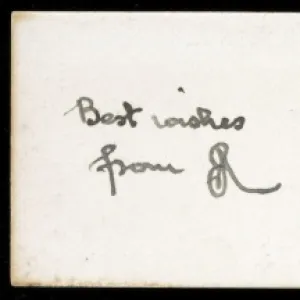 Best wishes
from